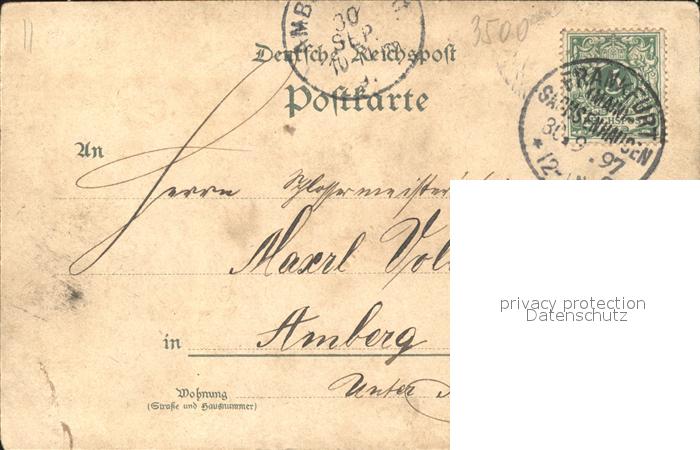 3500
AMB
30
SEP.
Deutsche Reichspost
Postkarte
FRANKFURT
(MAIN)
SACHSENHAUSEN
30.9.97
An
Herrn Schlossermeister
Maxrl Vol
in Amberg
Unter
Wohnung
(Straße und Hausnummer)
privacy protection
Datenschutz